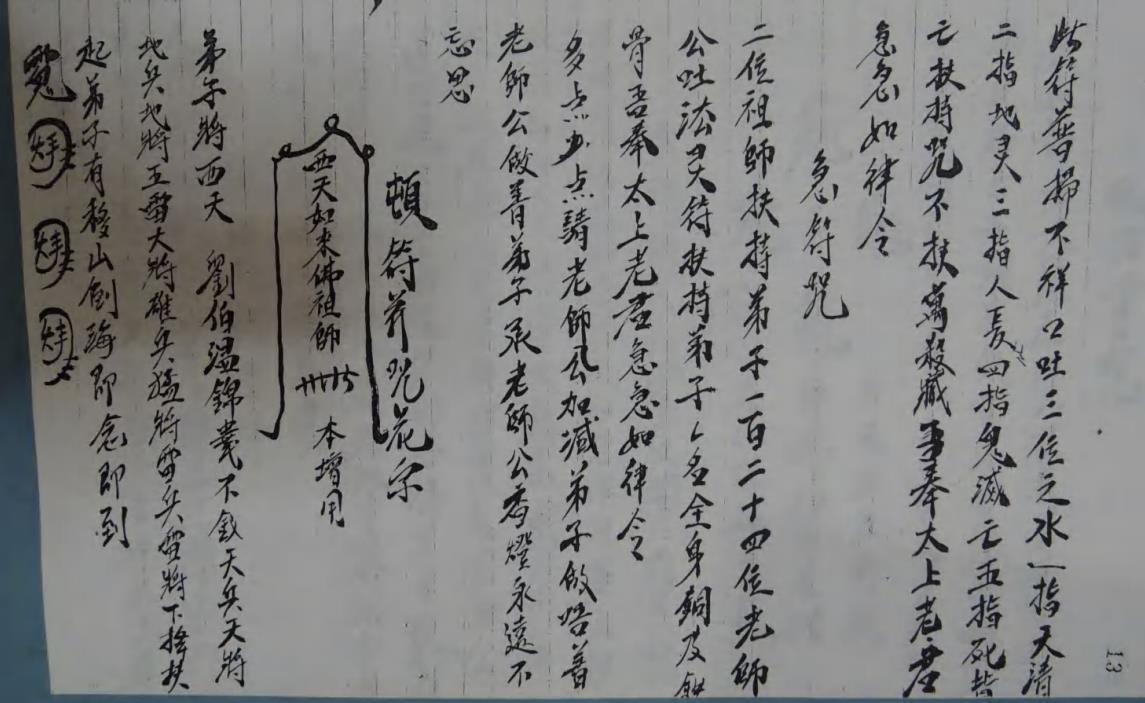 此符普掃不祥口吐三位之水一指天清
二指地灵三指人長四指鬼滅亡五指死
亡扶持咒不扶寫殺藏吾奉太上老君
急急如律令
急符咒
二位祖師扶持弟子一百二十四位老師
公吐法灵符扶持弟子厶名全身銅皮鉄
骨吾奉太上老君急急如律令
多点少点請老師公加減弟子做
老師公做善弟子承老師公香燈永遠不
忘恩
頓符并咒花字
西天如來佛祖師
本增用
弟子將西天 劉伯温錦 天兵天將
地兵地將五雷大將雄兵猛將雷兵雷將下 扶
起弟子有移山倒海即念即到
13